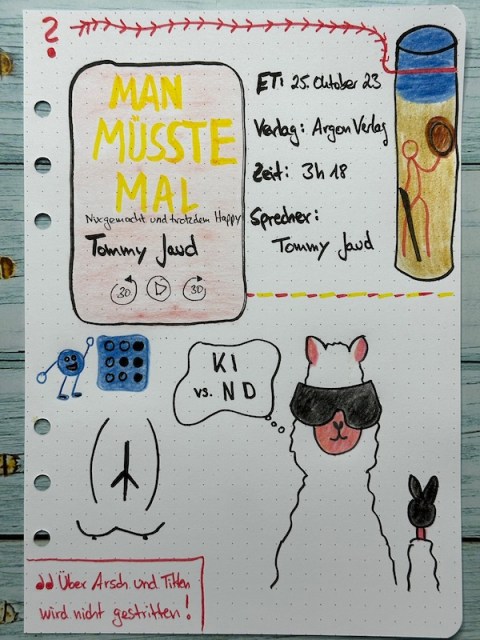 ?
MAN
MÜSSTE
MAL
Nix gemacht und trotzdem Happy
Tommy Jaud
30 30
ET: 25. Oktober 23
Verlag: Argon Verlag
Zeit: 3h 18
Sprecher:
Tommy Jaud
KI
vs. ND
Über Arsch und Titten
wird nicht gestritten!